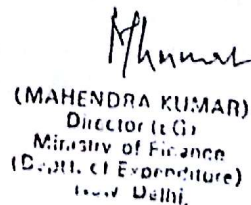 (MAHENDRA KUMAR)
Director (EG)
Ministry of Finance
(Deptt. of Expenditure)
New Delhi.